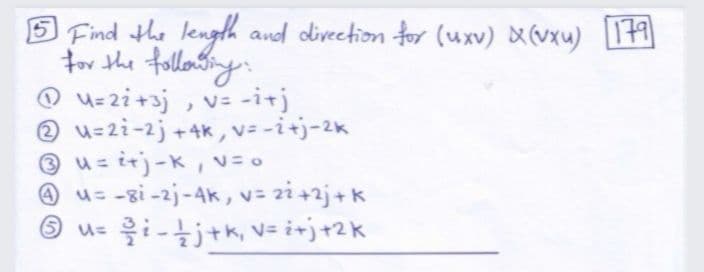 5 Find the length and direction for (uxv) &(vxu) 179
for the following:
① u=2i+3j , v= -i+j
② u=2i-2j+4k, v= -i+j-2k
③ u= i+j-k , v=o
④ u= -8i-2j-4k, v= 2i+2j+k
⑤ u= 3/2 i - 1/2 j+k, v= i+j+2k